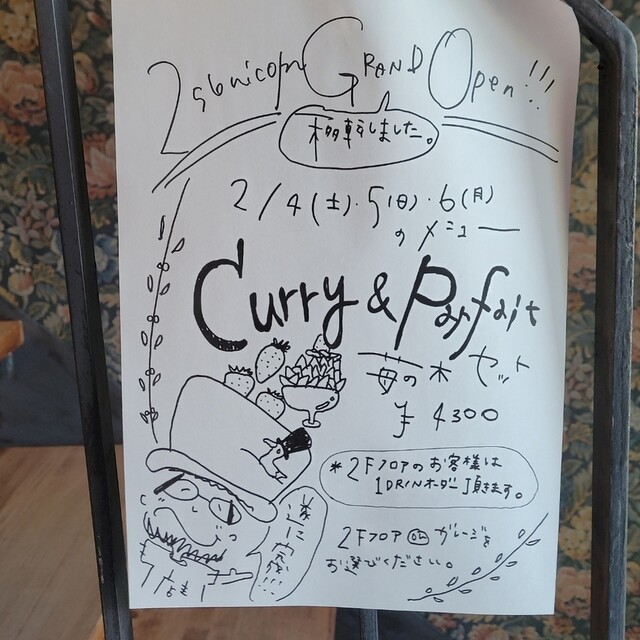 GRAND Open!!!
移転しました。
2/4(土)・5(日)・6(月)
のメニュー
Curry & Parfait
苺の木 セット
¥4300
*2Fフロアのお客様は
1DRINKオーダー頂きます。
2Fフロア or ガレージを
お選びください。